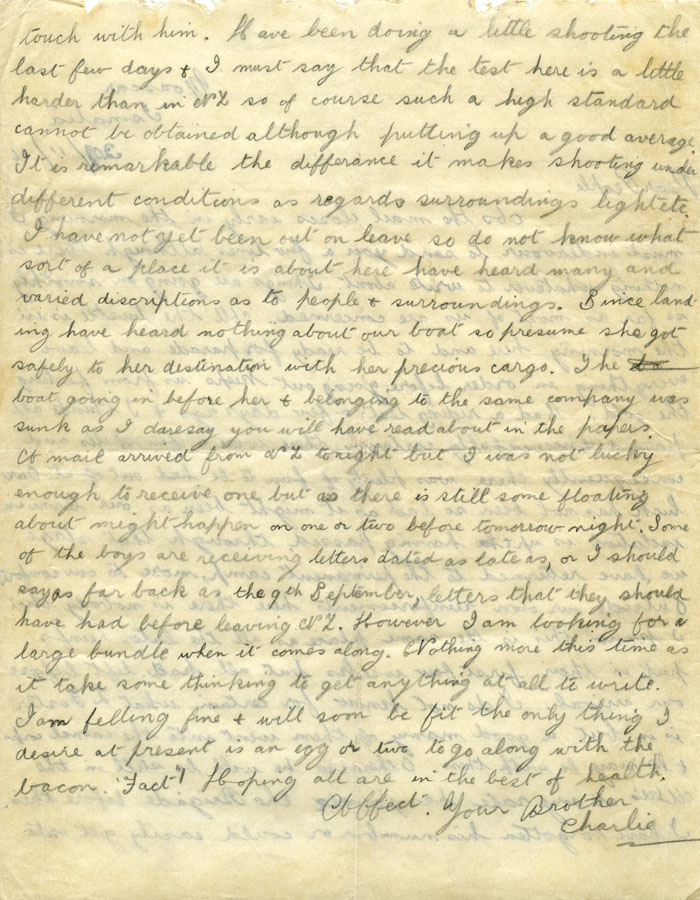 touch with him. Have been doing a little shooting the
last few days & I must say that the test here is a little
harder than in NZ so of course such a high standard
cannot be obtained although putting up a good average.
It is remarkable the differance it makes shooting under
different conditions as regards surroundings light etc
I have not yet been out on leave so do not know what
sort of a place it is about here have heard many and
varied discriptions as to people & surroundings. Since land-
ing have heard nothing about our boat so presume she got
safely to her destination with her precious cargo. The
boat going in before her & belonging to the same company was
sunk as I daresay you will have read about in the papers.
A mail arrived from NZ tonight but I was not lucky
enough to receive one but as there is still some floating
about might happen on one or two before tomorrow night. Some
of the boys are receiving letters dated as late as, or I should
say as far back as the 9th September, letters that they should
have had before leaving NZ. However I am looking for a
large bundle when it comes along. Nothing more this time as
it take some thinking to get anything at all to write.
I am felling fine & will soon be fit the only thing I
desire at present is an egg or two to go along with the
bacon. "Fact"! Hoping all are in the best of health.
Affect. Your Brother
Charlie